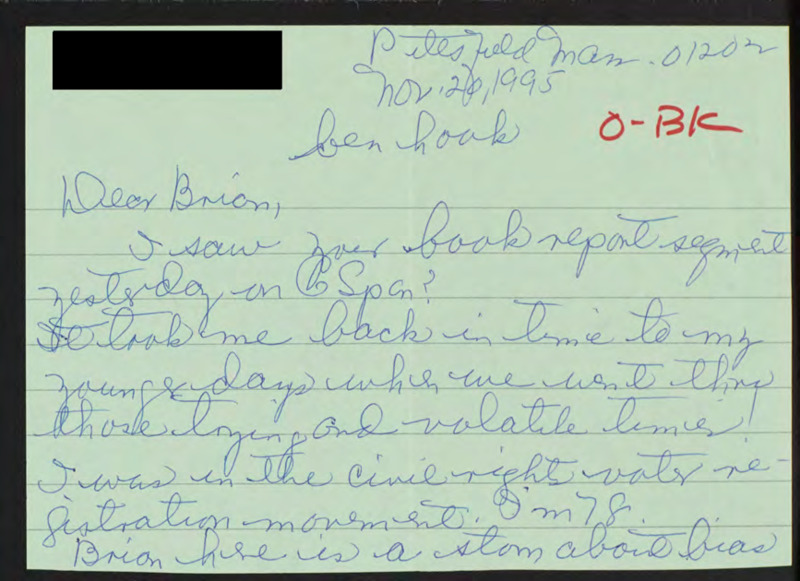 Pittsfield Mass. 01202
Nov. 20, 1995
ben hook O-BK
Dear Brian,
I saw your book report segment
yesterday on C Span?
It took me back in time to my
younger days when we went thru
those trying and volatile times!
I was in the civil right voter re-
gistration movement. I'm 78.
Brian here is a story about bias